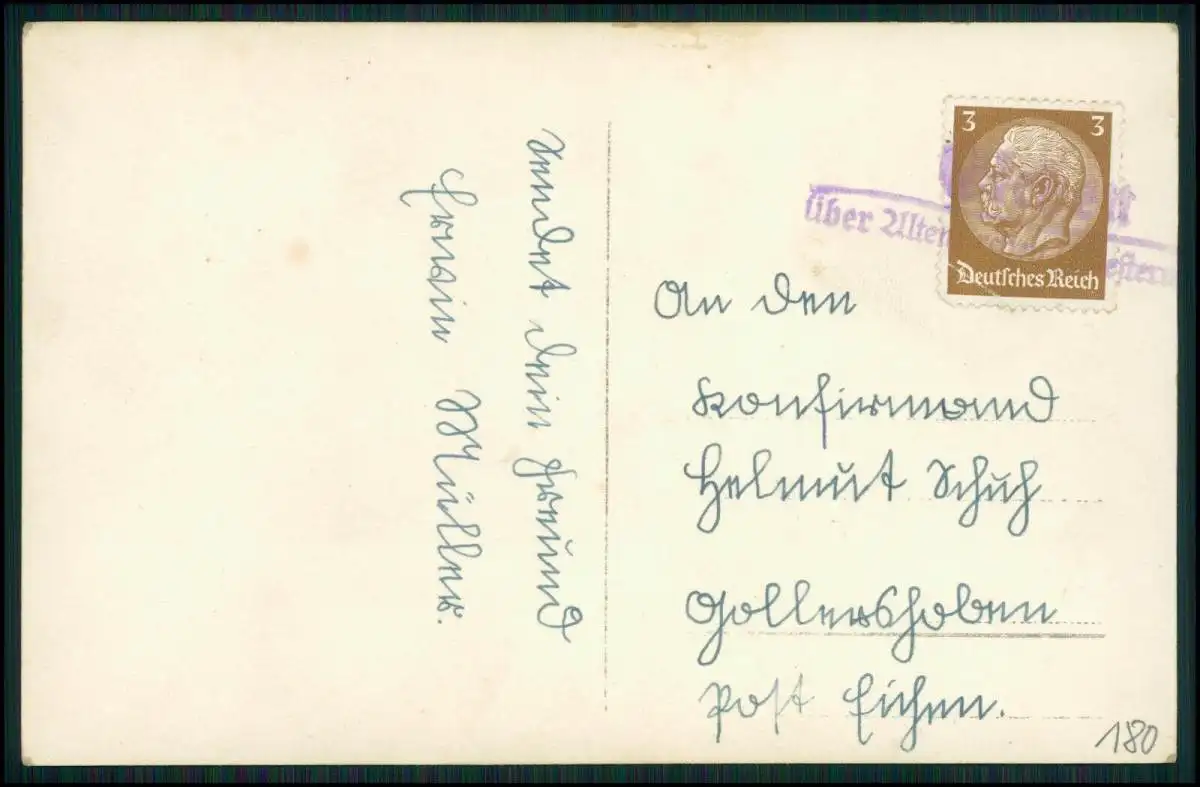 Sendet dein Freund
Erwin Müller.
3 3
Deutsches Reich
über Alten
estern
An den
Konfirmand
Helmut Schuh
Gollershoben
Post Eichen.
180